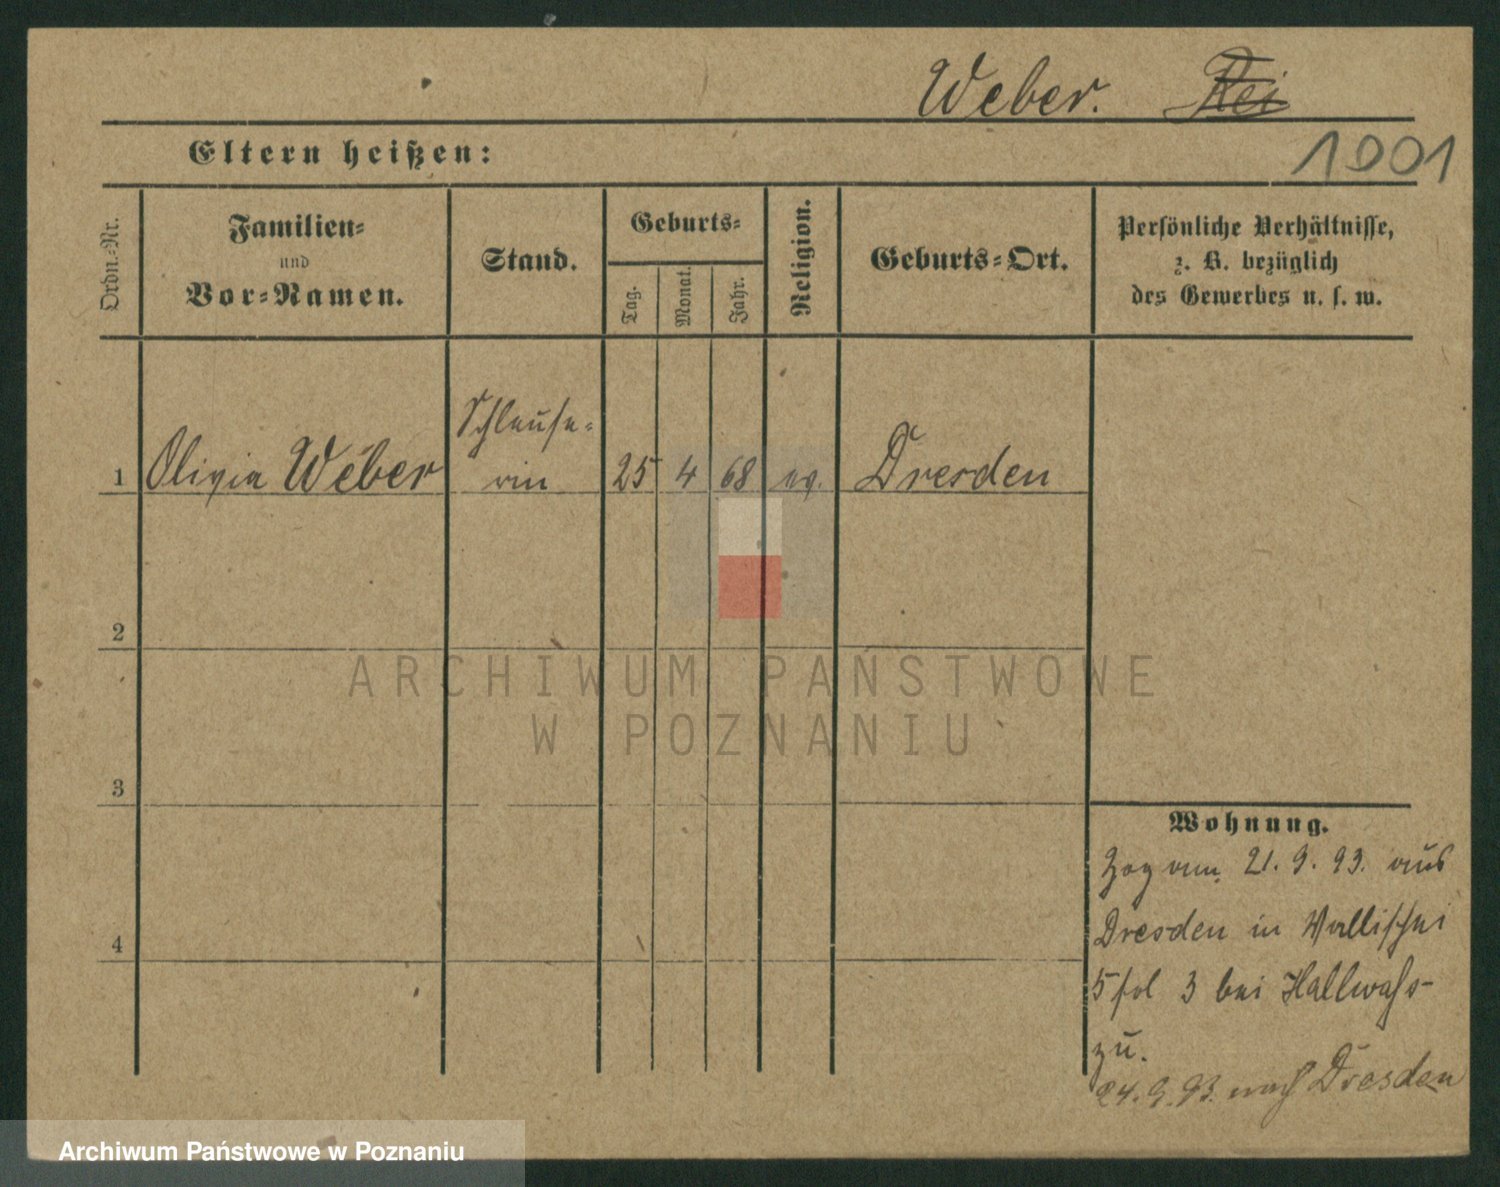 Weber.
1001
Eltern heißen:
Ordn.-Nr.
Familien-
und
Vor-Namen.
Stand.
Geburts-
Tag.
Monat.
Jahr.
Religion.
Geburts-Ort.
Persönliche Verhältnisse,
z. B. bezüglich
des Gewerbes u. s. w.
1 Olivia Weber 25 4 68 ev. Dresden
2
3
4
Wohnung.
Zog am 21. 9. 93. aus
Dresden in Wallischei
5 bei
zu.
24. 9. 93. nach Dresden
ARCHIWUM PAŃSTWOWE
W POZNANIU
Archiwum Państwowe w Poznaniu